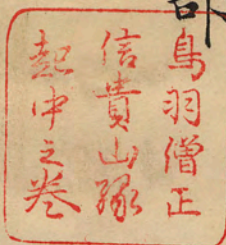 鳥羽僧正
信貴山縁
起中之巻